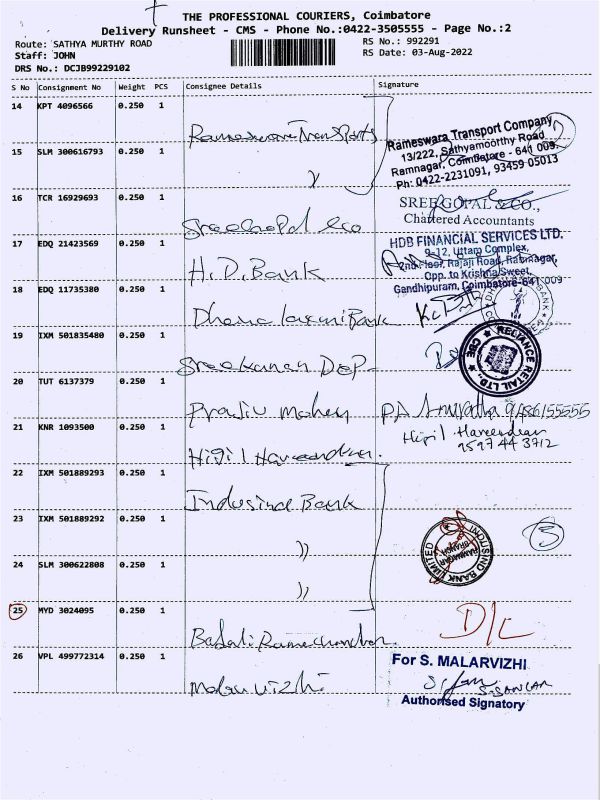 THE PROFESSIONAL COURIERS, Coimbatore
Delivery Runsheet - CMS - Phone No.:0422-3505555 - Page No.:2
Route: SATHYA MURTHY ROAD
RS No.: 992291
Staff: JOHN
RS Date: 03-Aug-2022
DRS No.: DCJB99229102
S No Consignment No Weight PCS Consignee Details Signature
14 KPT 4096566 0.250 1
Rameswara Transports
Rameswara Transport Company
13/222, Sathyamoorthy Road
Ramnagar, Coimbatore - 641 009.
Ph: 0422-2231091, 93459 05013
15 SLM 300616793 0.250 1
16 TCR 16929693 0.250 1
SREE GOPAL & CO.,
Chartered Accountants
17 EDQ 21423569 0.250 1
H.D. Bank
HDB FINANCIAL SERVICES LTD.
9-12, Uttam Complex,
2nd Floor, Rajaji Road, Ramnagar,
Opp. to Krishna Sweet,
Gandhipuram, Coimbatore-641 009
18 EDQ 11735380 0.250 1
Dhana laxmi Bank
19 IXM 501835480 0.250 1
RELIANCE RETAIL LTD.,
20 TUT 6137379 0.250 1
21 KNR 1093500 0.250 1
Higil Hareendran.
Higil Hareendran
9597443712
22 IXM 501889293 0.250 1
Indusind Bank
23 IXM 501889292 0.250 1
))
INDUSIND BANK LIMITED
RAMNAGAR
BRANCH
3
24 SLM 300622808 0.250 1
))
25 MYD 3024095 0.250 1
D/L
26 VPL 499772314 0.250 1
For S. MALARVIZHI
Authorised Signatory